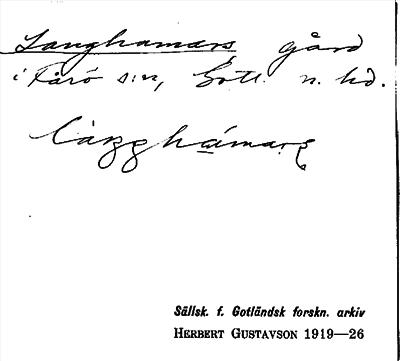 Langhamars gård
i Fårö s:n, Gotl. n. hd.
làŋghàmaṛṣ
Sällsk. f. Gotländsk forskn. arkiv
HERBERT GUSTAVSON 1919—26